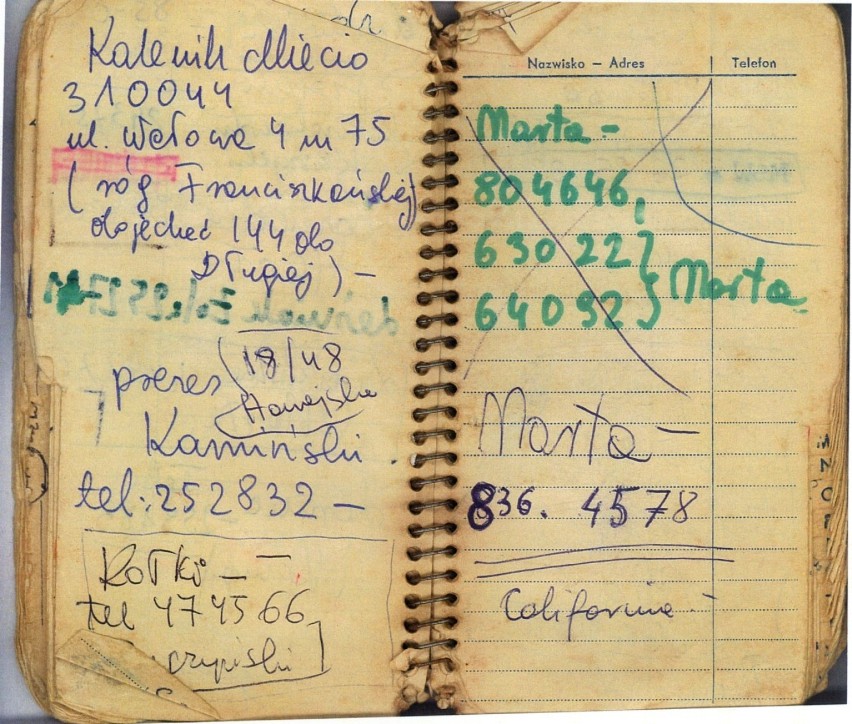 Kalenik Miecio
310044
ul. Wałowa 4 m 75
( róg Franciszkańskiej
dojechać 144 do
Długiej ) —
prezes
18/48
Kamiński.
tel: 252832 —
Kotki — —
tel 474566
Nazwisko — Adres Telefon
Marta -
804646,
63022 } Marta
64092
Marta —
836. 4578
California -